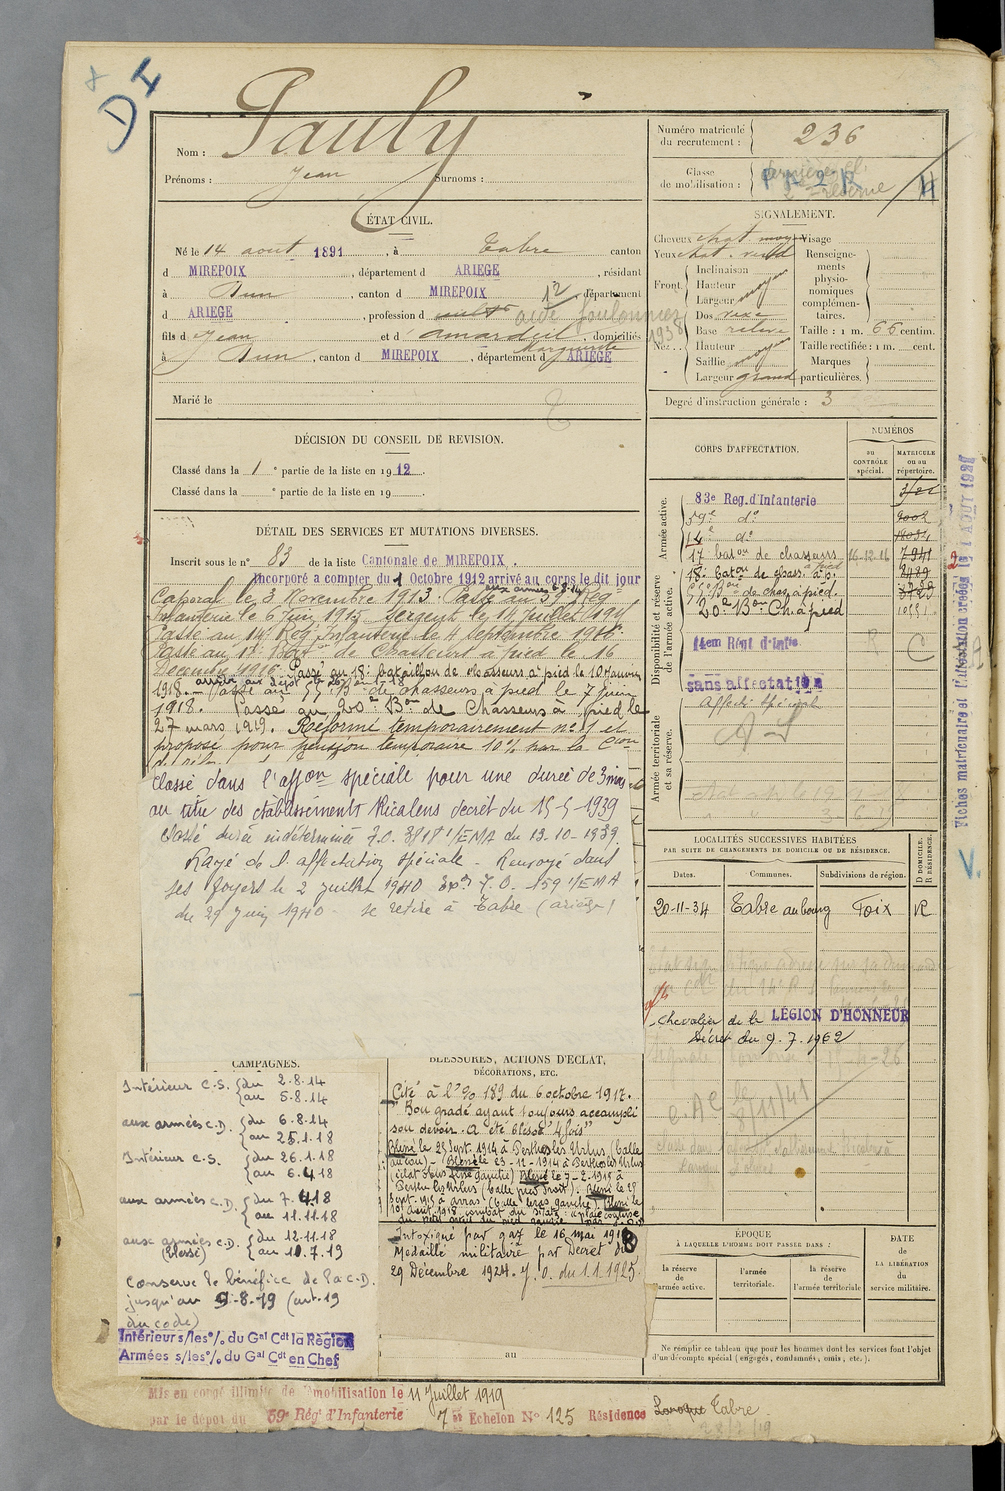 DI
Nom : Pauly
Prénoms : Jean Surnoms :
ÉTAT CIVIL.
Né le 14 aout 1891, à Tabre canton
d MIREPOIX, département d ARIEGE, résidant
à Dun, canton d MIREPOIX, 12 département
d ARIEGE, profession d cultr aide foulonnier
1938
fils d Jean et d' Amardeil Marguerite, domiciliés
à Dun, canton d MIREPOIX, département d ARIEGE
Marié le
DÉCISION DU CONSEIL DE REVISION.
Classé dans la 1e partie de la liste en 1912.
Classé dans la e partie de la liste en 19
DÉTAIL DES SERVICES ET MUTATIONS DIVERSES.
Inscrit sous le n° 83 de la liste Cantonale de MIREPOIX.
Incorporé a compter du 1 Octobre 1912 arrivé au corps le dit jour
aux armées 6.8.14
Caporal le 3 Novembre 1913. Passé au 59e Reg
Infanterie le 6 Juin 1913. Sergent le 11 Juillet 1914
Passé au 14e Reg Infanterie le 4 septembre 1916.
Passé au 17e Baton de Chasseurs à pied le 16
Decembre 1916. Passé au 18e bataillon de chasseurs à pied le 10 Janvier
1918. Passé au 55e Bon de chasseurs à pied le 7 Juin
1918. Passé au 20e Bon de Chasseurs à pied le
27 mars 1919. Réformé temporairement n° 1 et
proposé pour pension temporaire 10% par la Con
Classé dans l'affon spéciale pour une durée de 3 mois
au titre des établissements Ricalens decrêt du 15-5-1939
Classé durée indéterminée J.O. 3/18 1/EMA du 12-10-1939.
Rayé de l'affectation spéciale - Renvoyé dans
ses foyers le 2 juillet 1940 Expon J.O. 159 1/EMA
du 29 Juin 1940. se retire à Tabre (ariège)
CAMPAGNES.
Intérieur C.S. { du 2-8-14
au 5-8-14
aux armées C.D. { du 6-8-14
au 25-1-18
Intérieur C.S. { du 26-1-18
au 6-4-18
aux armées C.D. { du 7-4-18
au 11-11-18
aux armées C.D. (blessé) { du 12-11-18
au 10-7-19
Conserve le bénéfice de la C-D.
jusqu'au 9-8-19 (art. 19
du code)
Intérieur s/les % du Gal Cdt la Région
Armées s/les % du Gal Cdt en Chef
BLESSURES, ACTIONS D'ECLAT,
DÉCORATIONS, ETC.
Cité à l'% 189 du 6 octobre 1917.
"Bon gradé ayant toujours accompli
son devoir. A été blessé 4 fois"
Blessé le 25 Sept. 1914 à Perthes les Urlus (balle
au cou) - Blessé le 23-12-1914 à Perthes les Urlus
Blessé le 7-2-1915 à
Perthes les Urlus (balle pied droit). Blessé le 25
Sept. 1915 à Arras (balle bras gauche). Blessé le
Intoxiqué par gaz le 16 mai 1918
Médaillé militaire par Decret du
29 Décembre 1924. J.O. du 1.1.1925.
au
Mis en congé illimité de démobilisation le 11 Juillet 1919
par le dépôt du 59e Rég. d'Infanterie
7e Echelon N° 125 Résidence Laroque Tabre
23/7/19
Numéro matricule du recrutement : 236
Classe de mobilisation :
SIGNALEMENT.
Cheveux chat. moy. Visage
Yeux chat. verd
Front. Inclinaison
Hauteur
Largeur moyen
Nez. Dos rexe
Base relevé
Hauteur
Saillie moyen
Largeur grand
Renseignements physionomiques complémentaires.
Taille : 1 m. 66 centim.
Taille rectifiée : 1 m. cent.
Marques particulières.
Degré d'instruction générale : 3
CORPS D'AFFECTATION.
NUMÉROS
au CONTRÔLE spécial.
MATRICULE ou au répertoire.
Armée active.
83e Reg. d'Infanterie
59e do
14e do
17 baton de chasseurs à pied 16-12-16
18e baton de chass. à p.
55e Bon de chas. à pied.
20e Bon Ch. à pied
Disponibilité et réserve de l'armée active.
14em Régt d'Infie C
sans affectation
Affecté spécial
Armée territoriale et sa réserve.
Fiches matriculaire et d'affectation créées le 1 AOUT 1927
LOCALITÉS SUCCESSIVES HABITÉES
PAR SUITE DE CHANGEMENTS DE DOMICILE OU DE RÉSIDENCE.
Dates. Communes. Subdivisions de région. D DOMICILE. R RÉSIDENCE.
20-11-34 Tabre au bourg Foix R
Chevalier de la LÉGION D'HONNEUR
Décret du 9.7.1962
ÉPOQUE
À LAQUELLE L'HOMME DOIT PASSER DANS :
la réserve de l'armée active.
l'armée territoriale.
la réserve de l'armée territoriale
DATE DE LA LIBÉRATION du service militaire.
Ne remplir ce tableau que pour les hommes dont les services font l'objet
d'un décompte spécial (engagés, condamnés, omis, etc.).